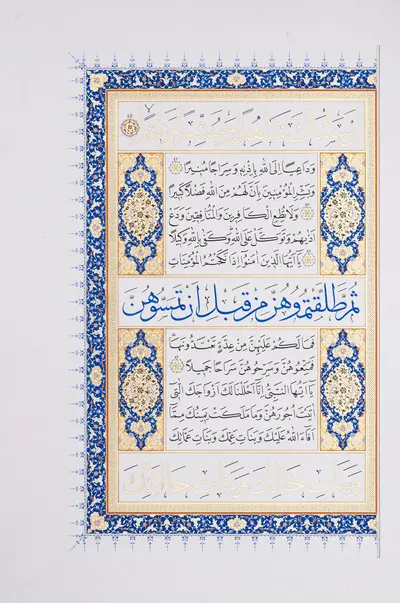 وَدَاعِيًا اِلَى اللهِ بِاِذْنِهٖ وَسِرَاجًا مُنِيرًا
وَبَشِّرِ الْمُؤْمِنِينَ بِاَنَّ لَهُمْ مِنَ اللهِ فَضْلًا كَبِيرًا
وَلَا تُطِعِ الْكَافِرِينَ وَالْمُنَافِقِينَ وَدَعْ
اَذٰيهُمْ وَتَوَكَّلْ عَلَى اللهِ وَكَفٰى بِاللهِ وَكِيلًا
يَٓا اَيُّهَا الَّذِينَ اٰمَنُٓوا اِذَا نَكَحْتُمُ الْمُؤْمِنَاتِ
ثُمَّ طَلَّقْتُمُوهُنَّ مِنْ قَبْلِ اَنْ تَمَسُّوهُنَّ
فَمَا لَكُمْ عَلَيْهِنَّ مِنْ عِدَّةٍ تَعْتَدُّونَهَا
فَمَتِّعُوهُنَّ وَسَرِّحُوهُنَّ سَرَاحًا جَمِيلًا
يَٓا اَيُّهَا النَّبِيُّ اِنَّٓا اَحْلَلْنَا لَكَ اَزْوَاجَكَ الّٰتِٓي
اٰتَيْتَ اُجُورَهُنَّ وَمَا مَلَكَتْ يَمِينُكَ مِمَّٓا
اَفَٓاءَ اللهُ عَلَيْكَ وَبَنَاتِ عَمِّكَ وَبَنَاتِ عَمَّاتِكَ
وَبَنَاتِ خَالِكَ وَبَنَاتِ خَالَاتِكَ